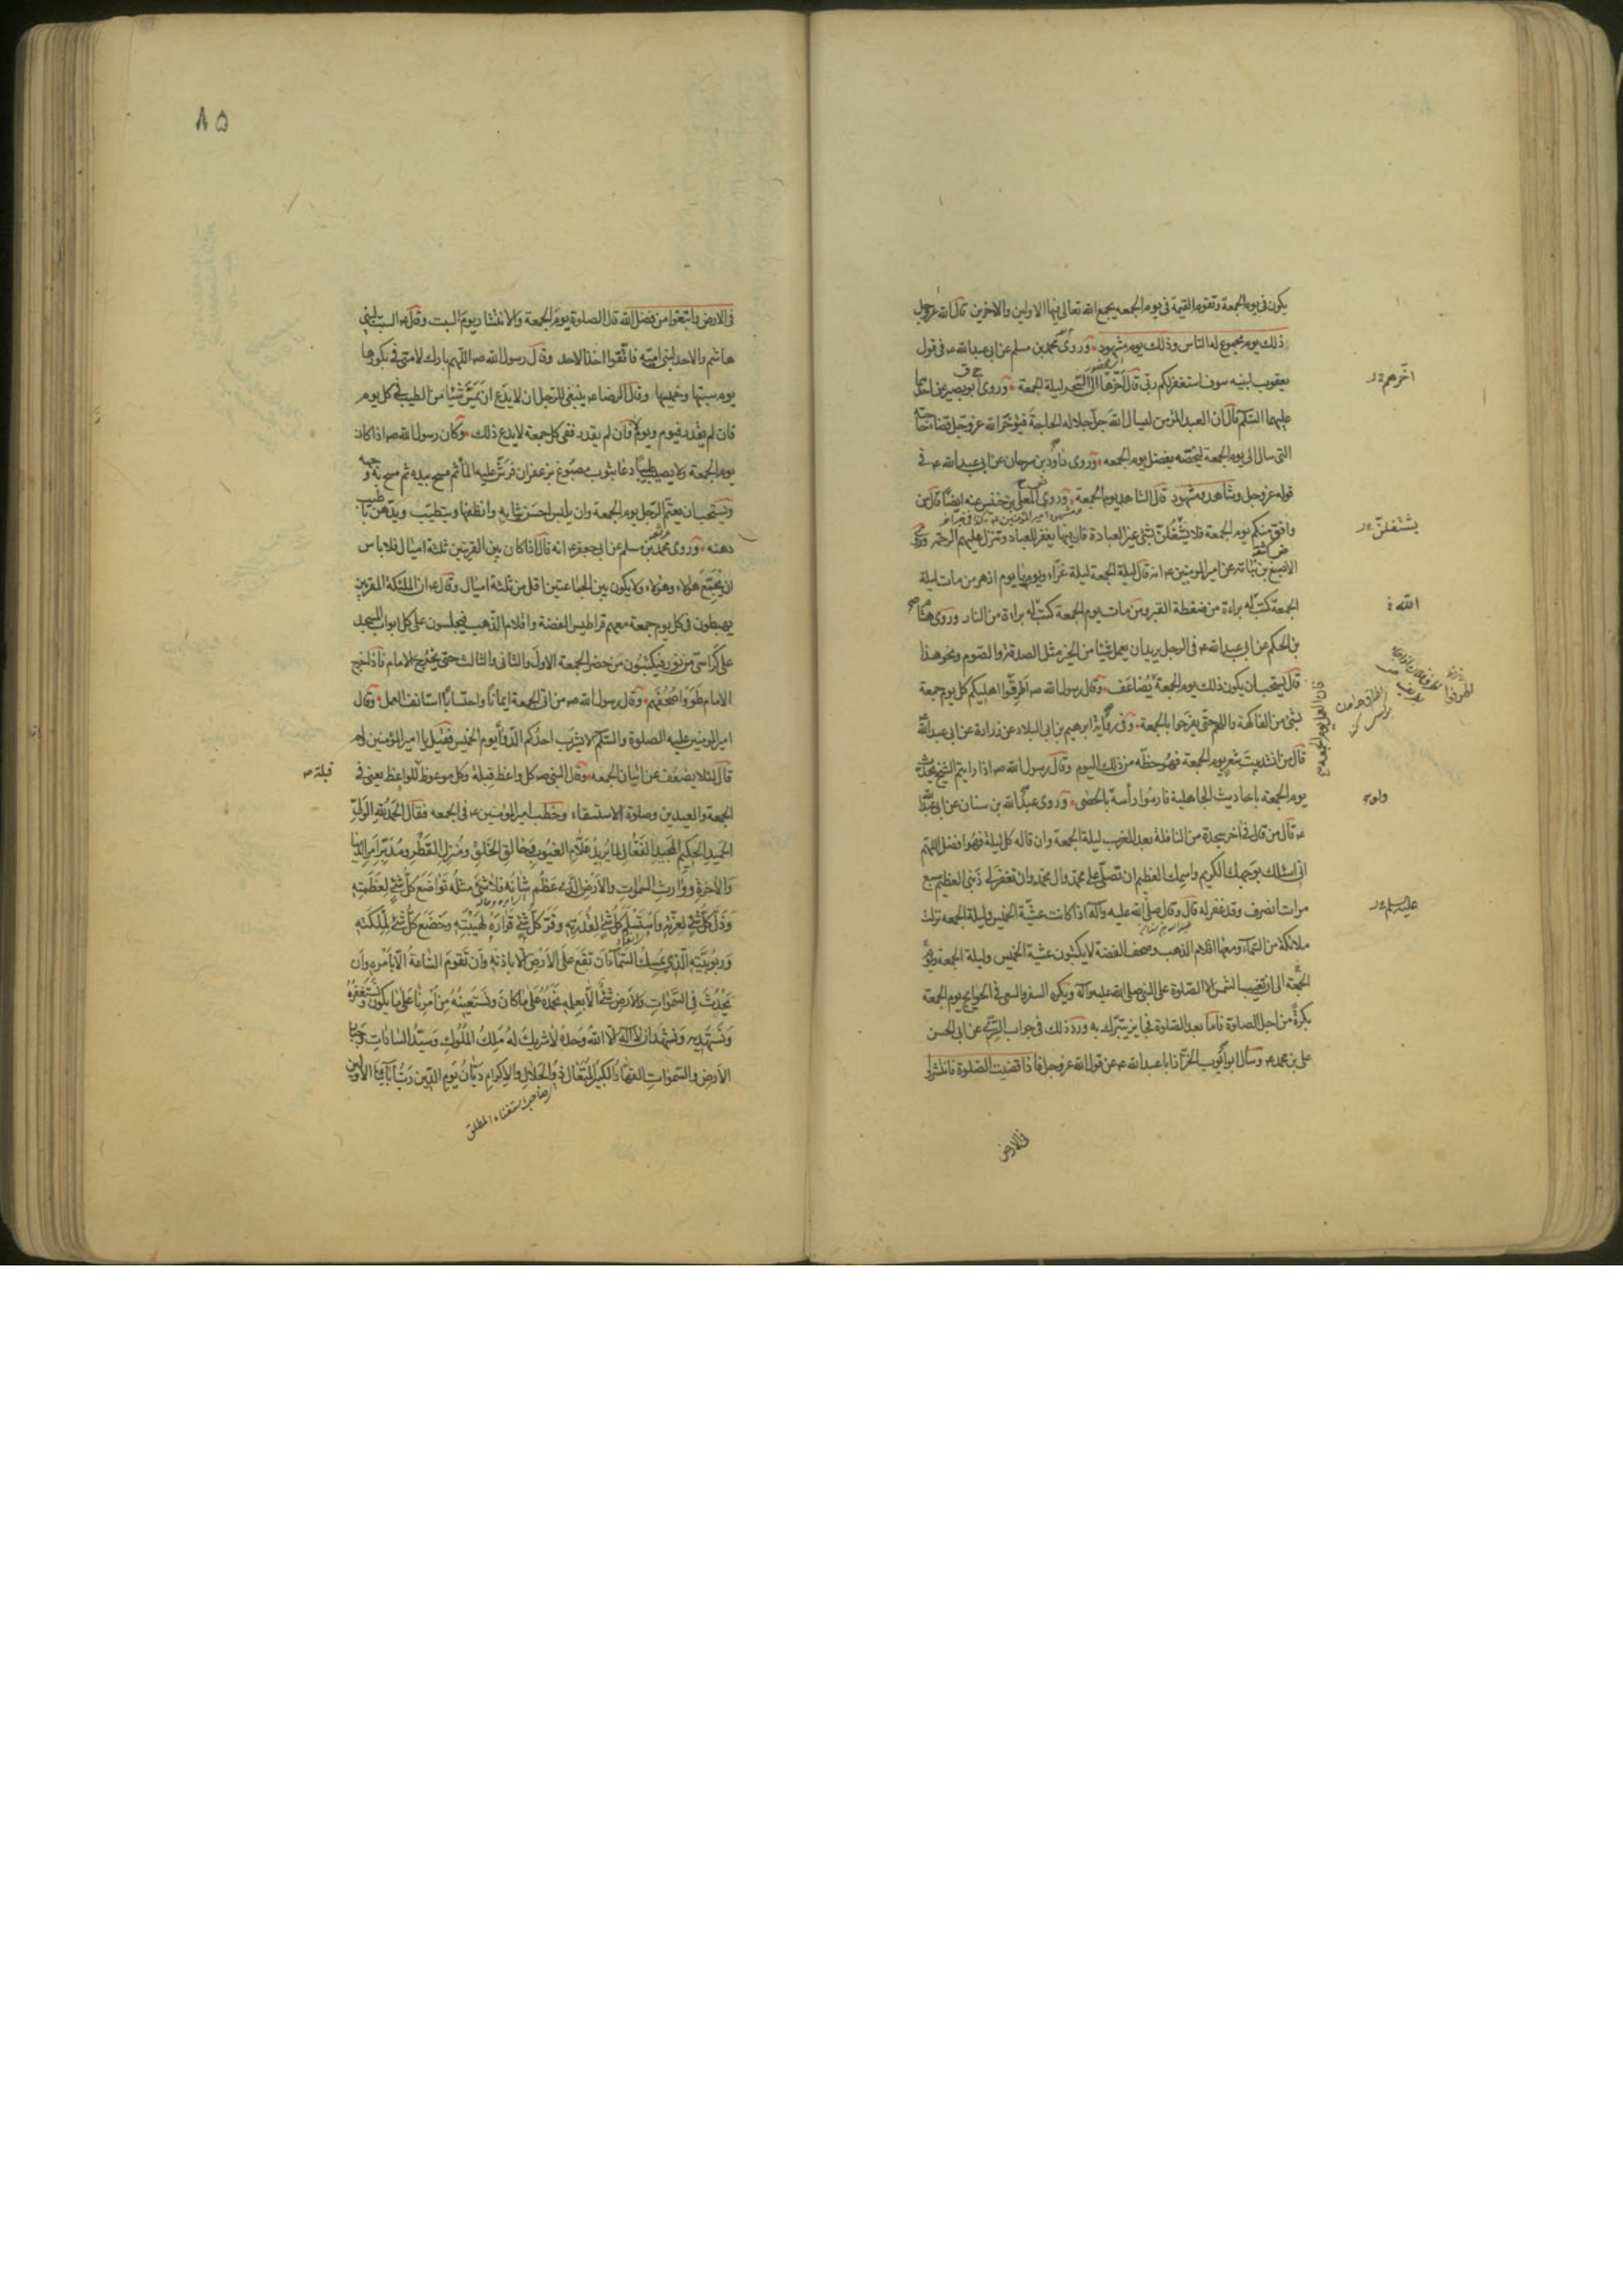 يكون فى يوم الجمعة وتقوم القيمة فى يوم الجمعه يجمع الله تعالى فيها الاولين والاخرين قال الله عزوجل
ذلك يوم مجموع له الناس وذلك يوم مشهود وروى محمد بن مسلم عن ابى عبد الله ع فى قول
يعقوب لبنيه سوف استغفر لكم ربى قال اخّرها الى السّحر ليلة الجمعة وروى ابو بصير عن احدهما
عليهما السّلم قال ان العبد المؤمن ليسال الله جل جلاله الحاجة فيؤخّر الله عزوجل قضا حاجته
التى سال الى يوم الجمعة ليخصّه بفضل يوم الجمعه وروى داود بن سرحان عن ابى عبد الله ع فى
قوله عزوجل وشاهد ومشهود قال الشاهد يوم الجمعة وروى المعلى بن خنيس عنه ايضًا قال من
وافق منكم يوم الجمعة فلا يشغلنّ بشئ غير العبادة فان فيها يغفر للعباد وتنزل عليهم الرحمة وروى
الاصبغ بن نباته عن امير المومنين ع انه قال ليلة الجمعة ليلة غرّاء ويومها يوم ازهر من مات ليلة
الجمعة كتب له براءة من ضغطة القبر ومن مات يوم الجمعة كتب له براءة من النار وروى هشام
بن الحكم عن ابى عبد الله ع فى الرجل يريد ان يعمل شيئا من الخير مثل الصدقة والصّوم ونحو هذا
قال يستحب ان يكون ذلك يوم الجمعة يُضاعَف وقال رسول الله ص اَطرِفُوا اهليكم كل يوم جمعة
بشئ من الفاكهة واللحم حتى يفرحوا بالجمعة وفى رواية ابرهيم بن ابى البلاد عن زرارة عن ابى عبد الله
قال من انشد بيت شعر يوم الجمعة فهُو حظّه من ذلك اليوم وقال رسول الله ص اذا رايتم الشيخ يحدّث
يوم الجمعة باحاديث الجاهلية فارموا رأسه بالحصى وروى عبد الله بن سنان عن ابى عبد الله
ع قال من قال فى اخر سجدة من النافلة بعد المغرب ليلة الجمعة وان قاله كل ليلة فهُو افضل اللهم
انى اسئلك بوجهك الكريم واسمك العظيم ان تصلّى على محمّد وال محمّد وان تغفر لى ذنبى العظيم سبع
مرات انصرف وقد غفر له قال وقال صلى الله عليه وآله اذا كانت عشيّة الخميس وليلة الجمعه نزلت
ملائكة من السّمآء ومعها اقلام الذهب وصحف الفضة لا يكتبون عشيّة الخميس وليلة الجمعه ويوم
الجمعة الى ان تغيب الشمس الا الصّلوة على النبى صلى الله عليه وآله ويكره السفر والسعى فى الحوايج يوم الجمعة
بكرةً من اجل الصلوة فامّا بعد الصّلوة فجايز يتبرّك به ورد ذلك فى جواب السّرىّ عن ابى الحسن
على بن محمد ع وسال ابو ايّوب الخرّاز ابا عبد الله ع عن قول الله عزوجل فاذا قضيت الصّلوة فانتشروا
فى الارض
اخّرهم
يشتغلنّ
الله
ولو
عليهم
فان العمل يوم الجمعة
٨۵
فى الارض وابتغوا من فضل الله قال الصلوة يوم الجمعة والانتشار يوم السبت وقال ع السبت لبنى
هاشم والاحد لبنى اميّه فاتّقوا اخذ الاحد وقال رسول الله ص اللّهم بارك لامتى فى بكورها
يوم سبتها وخميسها وقال الرضا ع ينبغى للرجل ان لا يدع ان يمسّ شيئا من الطيب فى كل يوم
فان لم يقدر فيوم ويوم لا فان لم يقدر ففى كل جمعة لا يدع ذلك وكان رسول الله ص اذا كان
يوم الجمعة ولا يصيب طيبًا دعا بثوب مصبوغ بزعفران فرشّ عليه المآء ثم مسح بيده ثم مسح به وجهه
ويستحب ان يعتمّ الرّجل يوم الجمعة وان يلبس احسن ثيابه وانظفها ويتطيّب ويدّهن باطيب
دهنه وروى محمد بن مسلم عن ابى جعفر ع انه قال اذا كان بين القريتين ثلثة اميال فلا باس
ان يجتمع هؤلاء وهؤلاء ولا يكون بين الجماعتين اقل من ثلثة اميال وقال ع ان الملئكة المقربين
يهبطون فى كل يوم جمعة معهم قراطيس الفضة واقلام الذهب فيجلسون على كل ابواب المسجد
على كراسىّ من نور فيكتبون من حضر الجمعة الاول والثانى والثالث حتى يخرج الامام فاذا خرج
الامام طووا صحفهم وقال رسول الله ص من اتى الجمعة ايمانًا واحتسابًا استانف العمل وقال
امير المومنين عليه الصلوة والسّلم لا يشرب احدكم الدّوآء يوم الخميس فقيل يا امير المؤمنين ولم
قال لئلا يضعف عن اتيان الجمعه وقال النبى ص كل واعظ قبلة وكل موعوظ للواعظ يعنى فى
قبلة
الجمعة والعيدين وصلوة الاستسقاء وخطب امير المومنين ع فى الجمعه فقال الحمد لله الولىّ
الحميد الحكيم المجيد الفعّال لما يريد علّام الغيوب وخالق الخلق ومُنزل القطر ومدبّر امر الدنيا
والاخرة ووارث السموات والارض الّذى عظم شانه فلا شئ مثله تواضع كلّ شئ لعظمته
وذلّ كلّ شئ لعزّته واستسلم كلّ شئ لقدرته وقرّ كلّ شئ قراره لهيبته وخضع كلّ شئ لملكته
وربوبيّته الّذى يمسك السّمآء ان تقع على الارض الا باذنه وان تقوم السّاعة الّا بامره وان
يحدث فى السّموات والارض شئ الّا بعلمه نحمده على ما كان ونستعينه من امرنا على ما يكون ونستغفره
ونستهديه ونشهد ان لا اله الا الله وحده لا شريك له ملك الملوك وسيّد السادات وجبّار
الارض والسّموات القهّار الكبير المتعال ذو الجلال والاكرام ديّان يوم الدّين ربّ آبآئنا الاولين